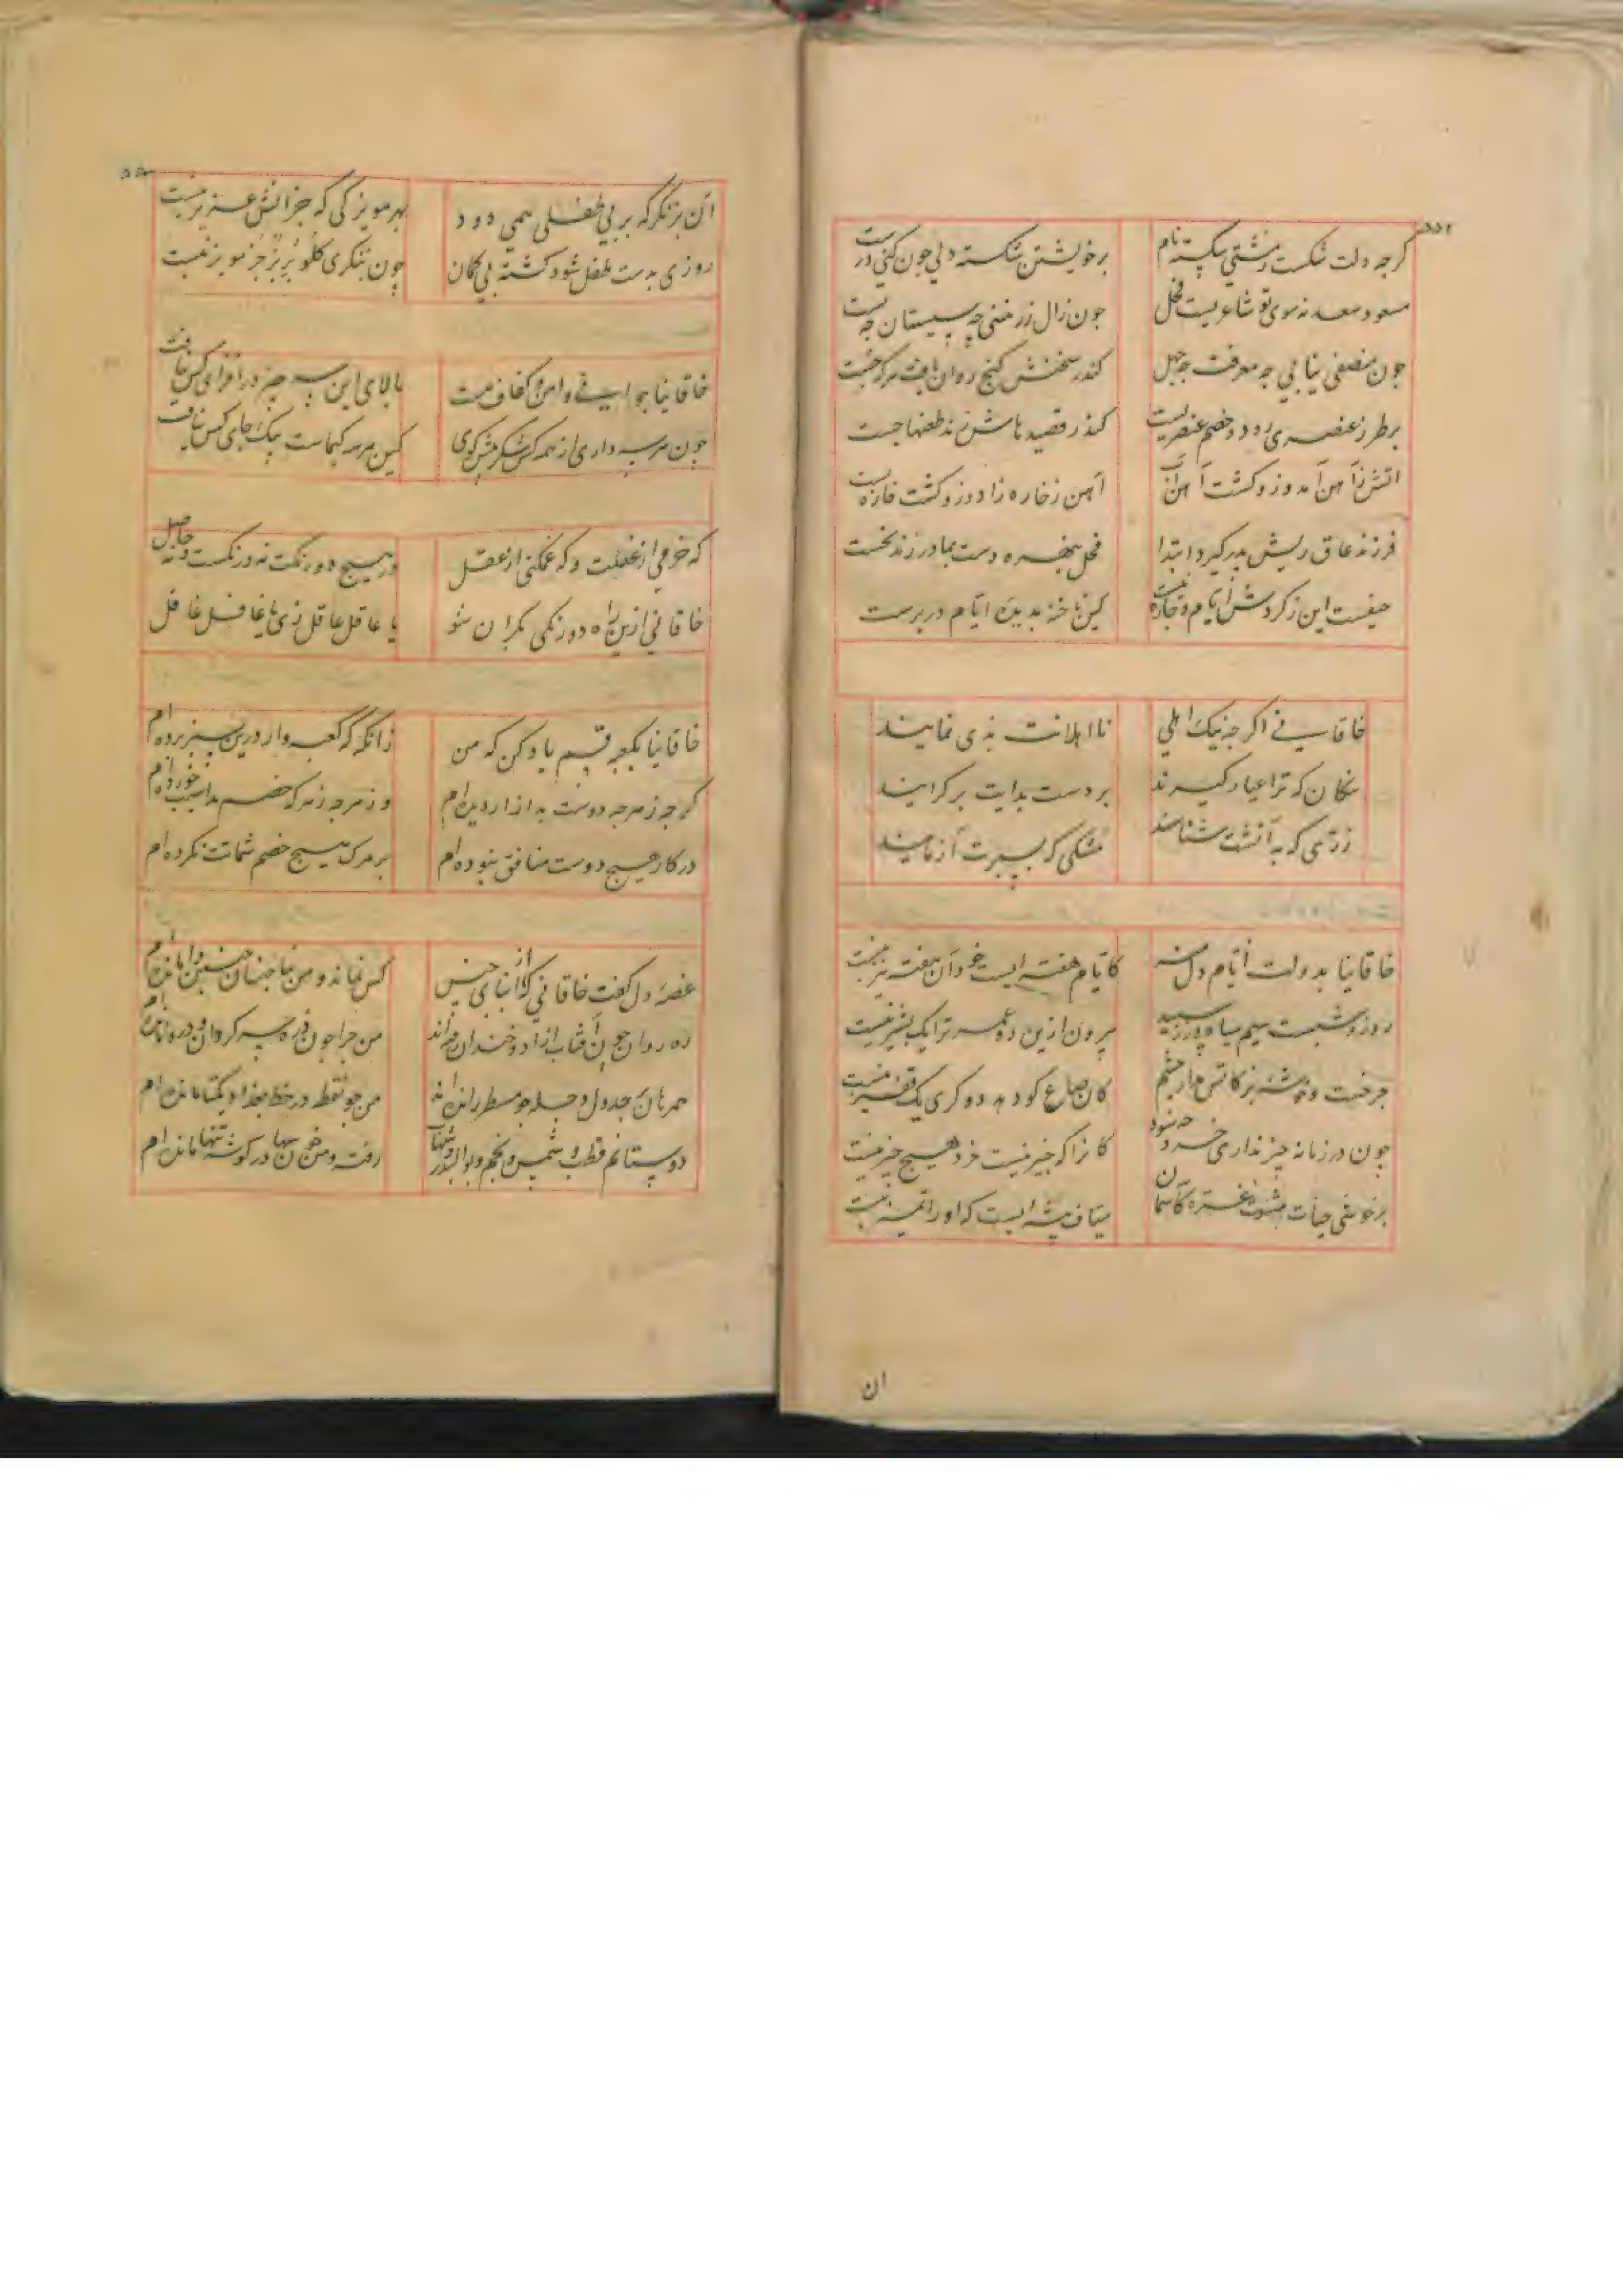 ۵۵۲
کرجه دلت شکست مشتی شکسته نام
برخویشتن شکسته دلی جون کنی درست
مسعود سعد نه سوی تو شاعریست فحل
جون منصفی نیابی جه معرفت جه جهل
جون زال زر منی جه سیستان جه بست
کندر سخنش کنج روان یافت هرکه جست
بر طرز عنصری رود و خصم عنصریست
کندر قصیدهاش زند طعنها جست
آتش ز آهن آمد و زو کشت آهن آب
آهن ز خاره زاد و زو کشت خاره سست
فرزند عاق ریش پدر کیرد ابتدا
فحل نبهره دست بمادر زند نخست
حیفست این ز کردش ایام و جاره نیست
کین ناخنه بدیده ایام در برست
خاقانی اکرجه نیک اهلی
نااهلانت بدی نمایند
نیکان که ترا عیار کیرند
بر دست بدانت برکرایند
زری که به آتشت شناسند
مشکی که بسیرت آزمایند
خاقانیا بدولت ایام دل منه
کایام هفته ایست خود آن هفته نیز نیست
روز و شبت سیم سیاه و زر سپید
بیرون ازین دو عمر ترا یک پشیز نیست
کان صاع کو دهد دو کری یک قفیز نیست
جون در زمانه جیز نداری خرد جه سود
کانرا که جیز نیست خرد هیچ جیز نیست
بر خوشی حیات مشو غره کاسمان
میثاق بیشه ایست که او را تمیز نیست
ان
۵۵
آن بز نکر که بر پی طفلی همی دود
بهر مویزکی که جز آنش عزیز نیست
روزی بدست طفل شود کشته بی کمان
چون بنکری کلو بر بز جز مویز نیست
خاقانیا جوانی و امن و کفاف هست
بالای این سه چیز درافزای کس نیافت
جون هر سه داری از همه کس شکر بیش کوی
کین هر سه کیمیاست بیک جای کس نیافت
که خرمی از غفلت و که غمکنی از عقل
در هیچ دو رنکت نه درنکست و نه حاصل
خاقانی ازین راه دو رنکی بکران شو
یا عاقل عاقل زی یا غافل غافل
خاقانیا بکعبه قسم یاد کن که من
زانکه که کعبه وار درین سبز پرده ام
کرجه ز هر جه دوست بد آزار دیده ام
وز هر جه زهر که خصم بد آسیب خورده ام
در کار هیچ دوست منافق نبوده ام
بر مرک هیچ خصم شماتت نکرده ام
غصه دل کفت خاقانی که از ابنای جنس
کس نماند و من بناجنسان جنین وامانده ام
ره روان چون آفتاب آزاد و خندان رفته اند
من جرا جون ذره سرکردان و دروا مانده ام
همرهان جدول دجله جو مسطر رانده اند
من جو نقطه در خط بغداد یکتا مانده ام
دوستانم قطب و شمس و نجم و بوالبدر و شهاب
رفته و من جون سها در کوشه تنها مانده ام